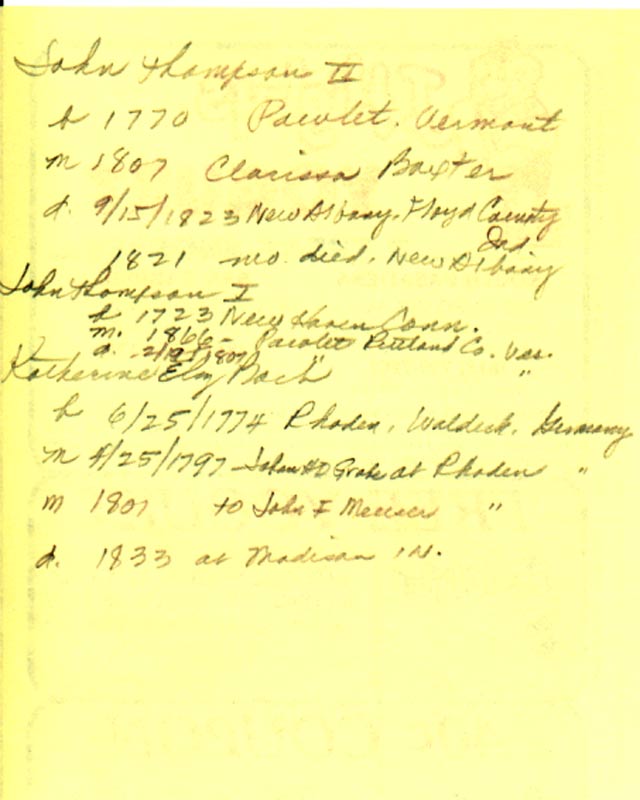 John Thompson II
b 1770 Pawlet. Vermont
m 1807 Clarissa Baxter
d. 9/15/1823 New Albany. Floyd County
Ind
1821 mo. died. New Albany
John Thompson I
b 1723 New Haven Conn.
m. 1866 - Pawlet Rutland Co. Ver.
d. " "
Katherine Elz Bach
b 6/25/1774 Rhoden. Waldeck. Germany
m 4/25/1797 John at Rhoden "
m 1801 to John F "
d. 1833 at Madison IN.